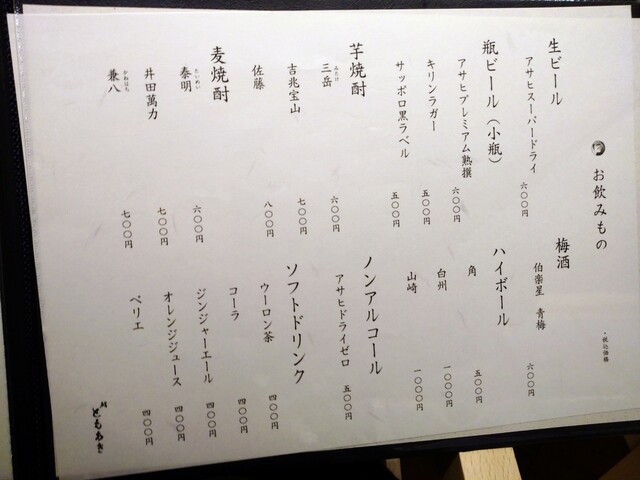 お飲みもの
・税込価格
生ビール
アサヒスーパードライ 六〇〇円
瓶ビール（小瓶）
アサヒプレミアム熟撰 六〇〇円
キリンラガー 五〇〇円
サッポロ黒ラベル 五〇〇円
芋焼酎
三岳 みたけ 六〇〇円
吉兆宝山 七〇〇円
佐藤 八〇〇円
麦焼酎
泰明 たいめい 六〇〇円
井田萬力 七〇〇円
兼八 かねはち 七〇〇円
梅酒
伯楽星 青梅 六〇〇円
ハイボール
角 五〇〇円
白州 一〇〇〇円
山崎 一〇〇〇円
ノンアルコール
アサヒドライゼロ 五〇〇円
ソフトドリンク
ウーロン茶 四〇〇円
コーラ 四〇〇円
ジンジャーエール 四〇〇円
オレンジジュース 四〇〇円
ペリエ 四〇〇円
ともあき